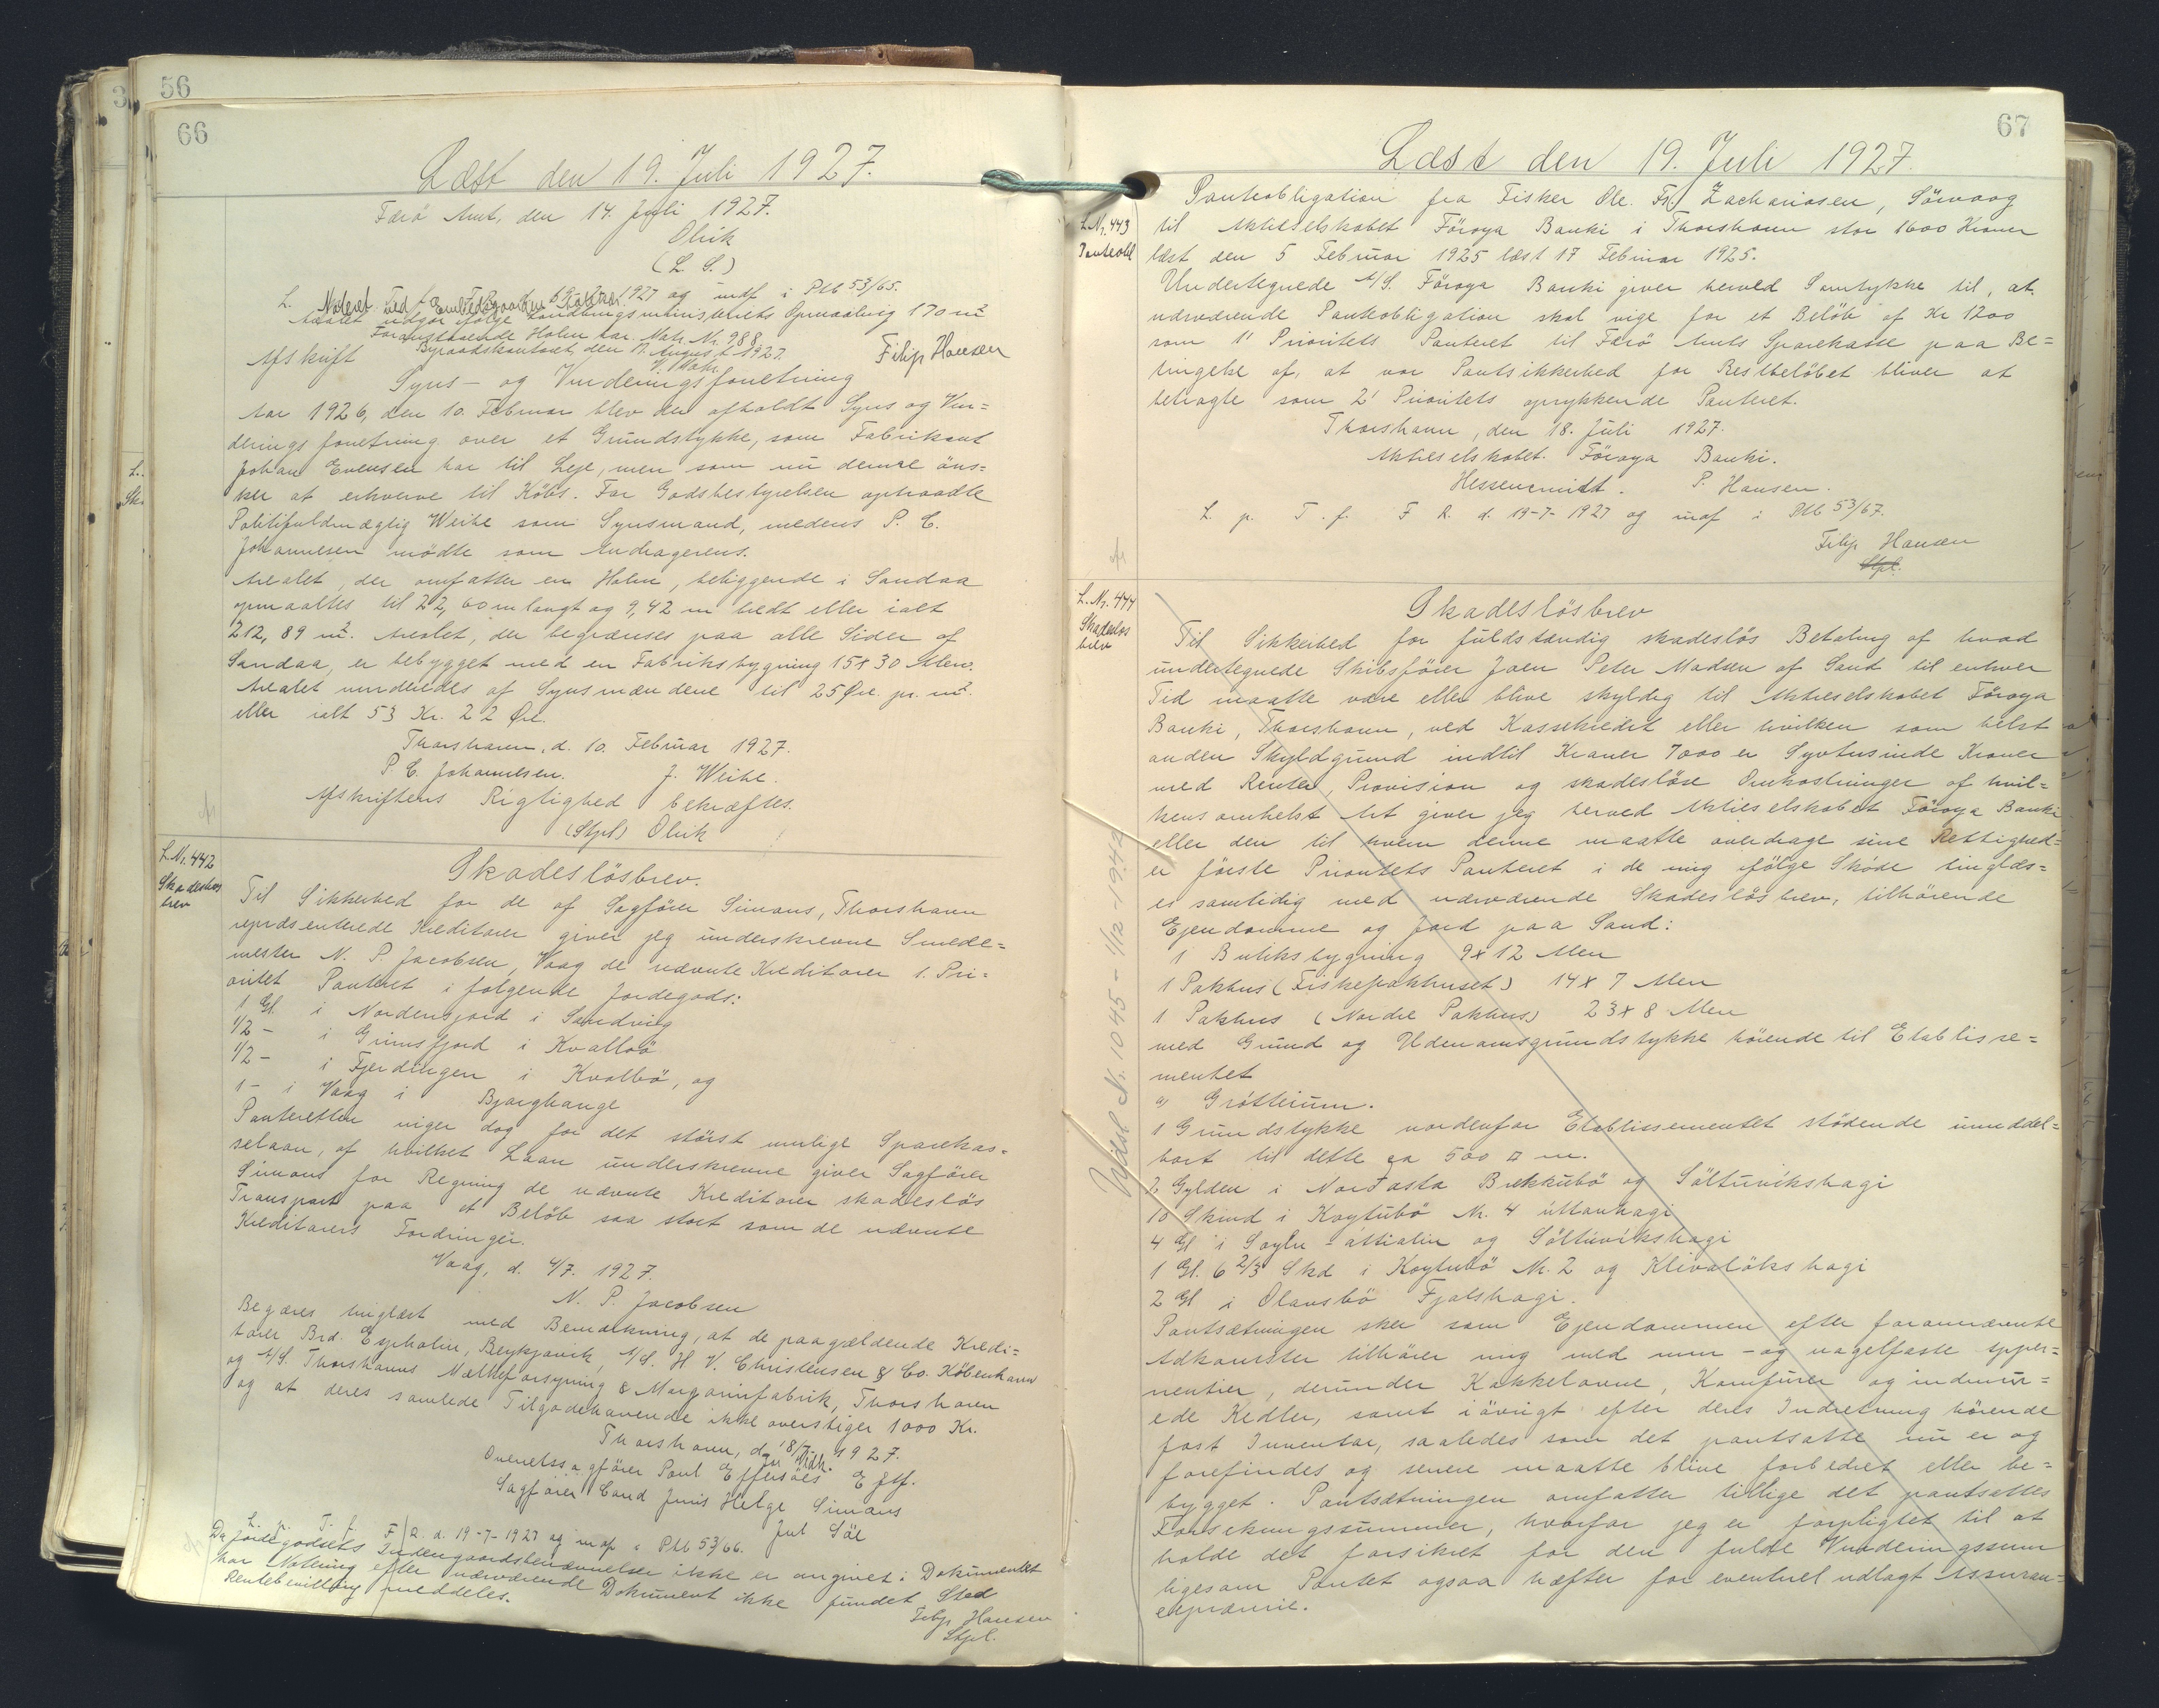 56
66
Læst den 19. Juli 1927.
Færö Amt, den 14. Juli 1927.
Olrik
(L. S.)
L. 1927 og indf i Ptb 53/65.
Noteret
Arealet udgør ifölge Landbrugsministeriets Opmaaling 170 m²
Foranstaaende Holm har Matr. Nr. 988
Byraadskontoret, den 17. August 1927.
Filip Hansen
Afskrift
Syns- og Vurderingsforretning
Aar 1926, den 10. Februar blev der afholdt Syns og Vur=
deringsforretning over et Grundstykke, som Fabrikant
Johan Evensen har til Leje, men som nu denne öns=
ker at erhverve til Köbs. For Godsbestyrelsen optraadte
Politifuldmægtig Weihe som Synsmand, medens P. C.
Johannesen mödte som Andragerens.
Arealet, der omfatter en Holm, beliggende i Sandaa
opmaaltes til 22,60 m langt og 9,42 m bredt eller ialt
212,89 m². Arealet, der begrænses paa alle Sider af
Sandaa, er bebygget med en Fabriksbygning 15 x 30 Alen.
Arealet vurderedes af Synsmændene til 25 Öre pr. m².
eller ialt 53 Kr. 22 Öre.
Thorshavn, d. 10. Februar 1927.
P. C. Johannesen. J. Weihe.
Afskriftens Rigtighed bekræftes.
(Stpl) Olrik
L. Nr. 442
Skadeslös
brev
Skadeslösbrev.
Til Sikkerhed for de af Sagförer Simans, Thorshavn
repræsenterede Kreditorer giver jeg underskrevne Smede=
mester N. P. Jacobsen, Vaag de nævnte Kreditorer 1. Pri=
oritet Panteret i folgende Jordegods:
1 Gl. i Nordensjord i Sandvig
1/2 - i Grimsfjord i Kvalbö
1/2 - i Fjerdingen i Kvalbö, og
1 - i Vaag i Bjarghange
Panteretten viger dog for det störst mulige Sparekas=
selaan, af hvilket Laan underskrevne giver Sagförer
Simans for Regning de nævnte Kreditorer skadeslös
Transport paa et Belöb saa stort som de nævnte
Kreditorers Fordringer.
Vaag, d. 4/7. 1927.
N. P. Jacobsen
Begæres tinglæst med Bemærkning, at de paagældende Kredi=
torer Brd. Espholin, Reykjavik, A/S. H. V. Christensen & Co. Köbenhavn
og A/S. Thorshavns Mælkeforsyning & Margarinfabrik, Thorshavn
og at deres samlede Tilgodehavende ikke overstiger 1000 Kr.
Thorshavn, d. 18/7 1927.
Overretssagförer Poul Effersöes Eftf.
Sagförer Cand Juris Helge Simans
L. p. T. f. F. R. d. 19-7-1927 og indf i Ptb 53/66.
Da Jordegodsets Indengaardsbenævnelser ikke er angivet i Dokumentet
har Notering efter nærværende Dokument ikke fundet Sted
Rentebevilling meddeles.
Filip Hansen
Stpl.
67
Læst den 19. Juli 1927.
L. Nr. 443
Panteobl
Panteobligation fra Fisker Ole. Fr. Zachariasen, Sörvaag
til Aktieselskabet Föroya Banki i Thorshavn stor 1600 Kroner
læst den 5 Februar 1925 læst 17 Februar 1925.
Undertegnede A/S. Föroya Banki giver herved Samtykke til, at
nærværende Panteobligation skal vige for et Belöb af Kr 1200
som 1' Prioritets Panteret til Færö Amts Sparekasse paa Be=
tingelse af, at vor Pantsikkerhed for Restbelöbet bliver at
betragte som 2' Prioritets oprykkende Panteret.
Thorshavn, den 18. Juli 1927.
Aktieselskabet. Föroya Banki.
P. Hansen.
L. p. T. f. F R. d. 19-7-1927 og indf i Ptb 53/67.
Filip Hansen
Stpl.
L. Nr. 444
Skadeslös
brev
Skadeslösbrev
Til Sikkerhed for fuldstændig skadeslös Betaling af hvad
undertegnede Skibsförer Joen Peter Madsen af Sand til enhver
Tid maatte være eller blive skyldig til Aktieselskabet Föroya
Banki, Thorshavn, ved Kassekredit eller hvilken som helst
anden Skyldgrund indtil Kroner 7000 er Syvtusinde Kroner
med Renter, Provision og skadeslöse Omkostninger af hvil=
kensomhelst Art giver jeg herved Aktieselskabet Föroya Banki
eller den til hvem denne maatte overdrage sine Rettighed=
er förste Prioritets Panteret i de mig ifölge Sköde tinglæs=
es samtidig med nærværende Skadeslösbrev, tilhörende
Ejendomme og Jord paa Sand:
1 Butiksbygning 9 x 12 Alen
1 Pakhus (Fiskepakhuset) 14 x 7 Alen
1 Pakhus (Nordre Pakhus) 23 x 8 Alen
med Grund og Udenomsgrundstykke hörende til Etablisse=
mentet
a, Gróthúsum.
1 Grundstykke nordenfor Etablissementet stödende umiddel=
bart til dette ca 500 □ m.
2 Gylden i Norðasta Brekkubö og Söltuvikshagi
10 Skind i Koytubö Nr. 4 úttanhagi
4 Gl i og Söltuvikshagi
1 Gl. 6 2/3 Skd i Koytubö Nr. 2 og Klivalökshagi
2 Gl i Olansbö Fjalshagi.
Pantsætningen sker som Ejendommen efter forannævnte
Adkomster tilhörer mig med mur- og nagelfaste apper=
nentier, derunder Kakkelovne, Komfurer og indmur=
ede Kedler, samt iövrigt efter deres Indretning hörende
fast Inventar, saaledes som det pantsatte nu er og
forefindes og senere maatte blive forbedret eller be=
bygget. Pantsætningen omfatter tillige det pantsattes
Forsikringssummer, hvorfor jeg er forpligtet til at
holde det forsikret for den fulde Vurderingssum
ligesom Pantet ogsaa hæfter for eventuel udlagt Assuran=
cepræmie.
Udsl. Nr. 1045 - 1/12-1942